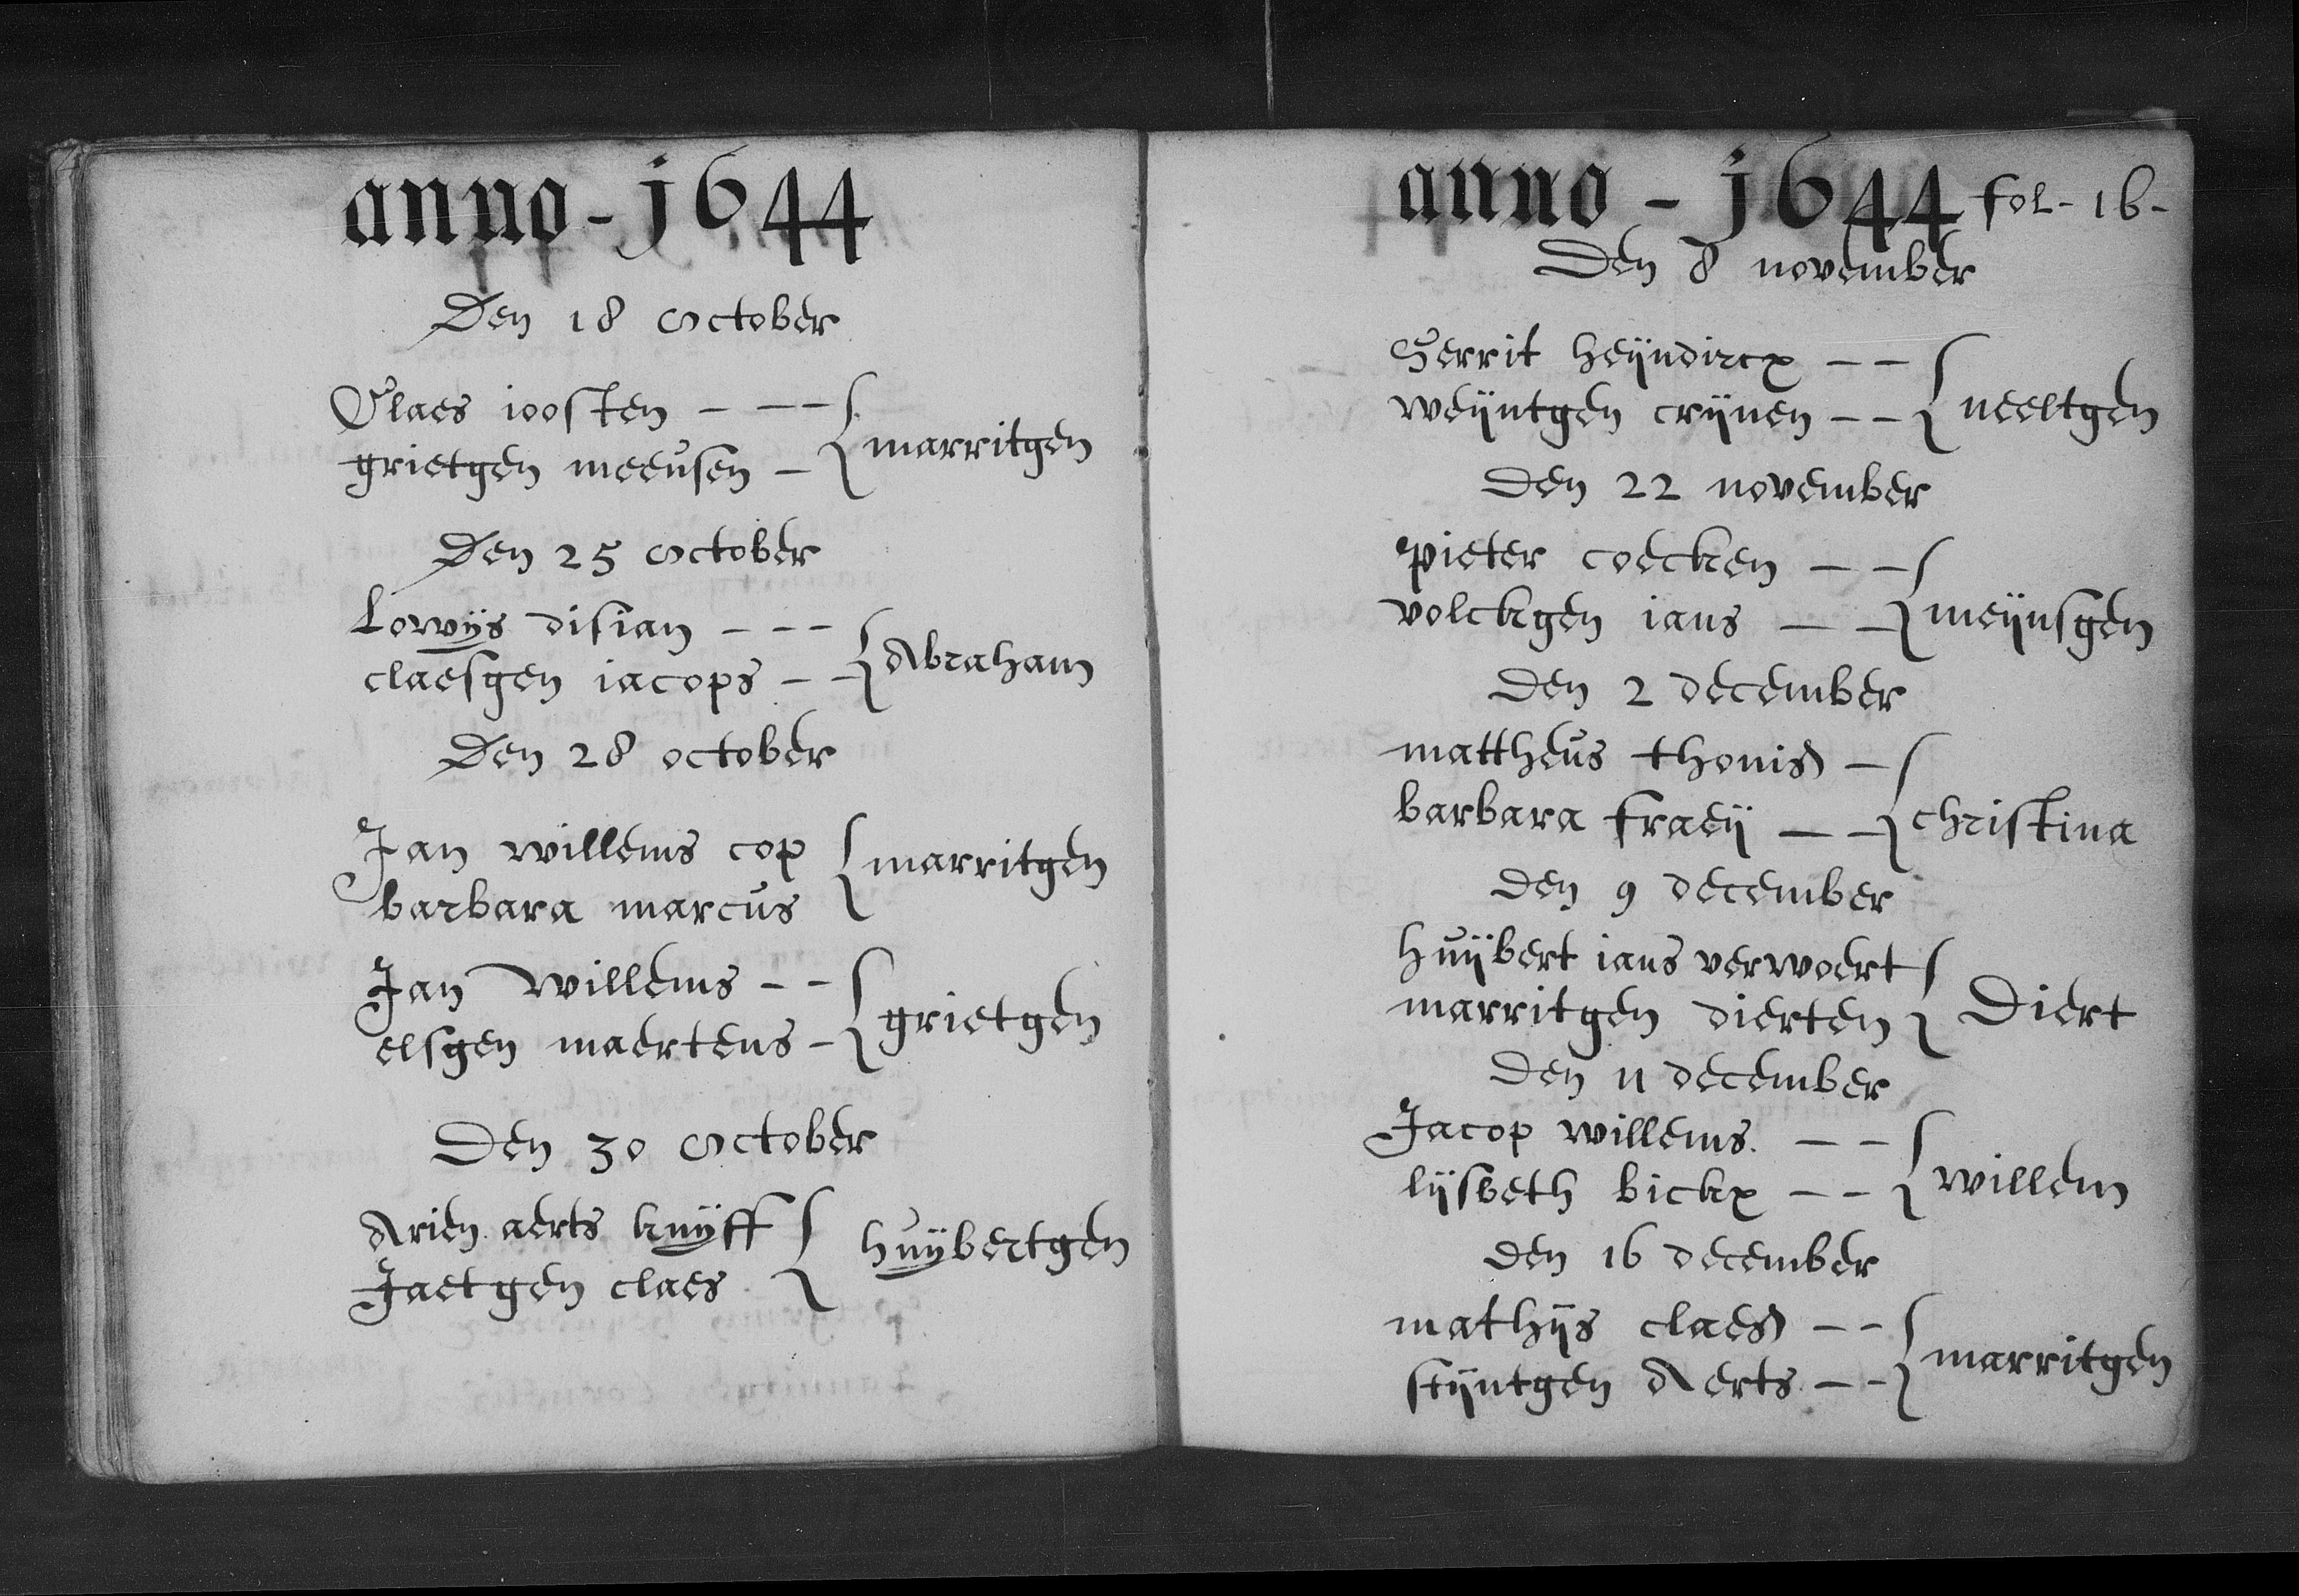 anno - 1644
Den 18 October
Claes joosten - - - { marritgen
grietgen meeusen -
Den 25 October
Lowijs disian - - - { Abraham
claesgen jacops - -
Den 28 october
Jan willems cop { marritgen
barbara marcus
Jan willems - - { grietgen
elsgen maertens -
Den 30 October
Arien aerts knijff { huijbertgen
Jaetgen claes
anno - 1644 fol - 16 -
Den 8 november
Gerrit heijndircx - - { neeltgen
weijntgen crijnen - -
Den 22 november
pieter coecken - - { meijnsgen
volckgen jans - -
Den 2 december
mattheus thonis - { christina
barbara fraeij - -
Den 9 december
huijbert jans verwoert { Diert
marritgen dierten
Den 11 december
Jacop willems. - - { willem
lijsbeth bickx - -
Den 16 december
mathijs claes - - { marritgen
stijntgen Aerts - -